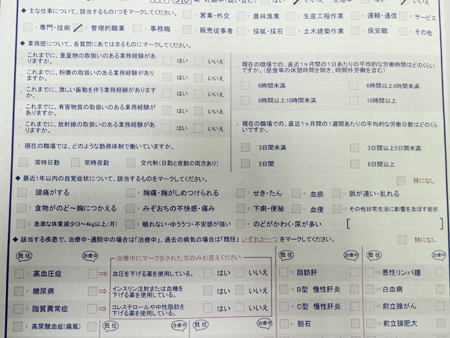 ◆ 主な仕事について、該当するもの1つをマークしてください。
営業・外交 農林漁業 生産工程作業 運輸・通信 サービス
専門・技術 管理的職業 事務職 販売従事者 採掘・採石 土木建築作業 保安職 その他
◆ 業務歴について、各質問にあてはまるものにマークしてください。
これまでに、重量物の取扱いのある業務経験がありますか。 はい いいえ
これまでに、粉塵の取扱いのある業務経験がありますか。 はい いいえ
これまでに、激しい振動を伴う業務経験がありますか。 はい いいえ
これまでに、有害物質の取扱いのある業務経験がありますか。 はい いいえ
これまでに、放射線の取扱いのある業務経験がありますか。 はい いいえ
現在の職場での、直近1ヶ月間の1日あたりの平均的な労働時間はどのくらいですか。(昼食等の休憩時間を除き、時間外労働を含む)
6時間未満 6時間以上8時間未満
8時間以上10時間未満 10時間以上
現在の職場では、どのような勤務体制で働いていますか。
常時日勤 常時夜勤 交代制(日勤と夜勤の両方あり)
現在の職場での、直近1ヶ月間の1週間あたりの平均的な労働日数はどのくらいですか。
3日間未満 3日間以上5日間未満
5日間 6日間以上
◆ 最近1年以内の自覚症状について、該当するものをマークしてください。 特になし
頭痛がする 胸痛・胸がしめつけられる せき・たん 血痰 脈が速い・乱れる
食物がのど～胸につかえる みぞおちの不快感・痛み 下痢・便秘 血便 その他日常生活に影響を及ぼす症状
急激な体重減少(3～4kg以上/月) 眠れない・ゆううつ・不安感が強い のどがかわく・尿が多い
◆ 該当する疾患で、治療中・通院中の場合は「治療中」、過去の病気の場合は「既往」いずれか一つをマークしてください。 特になし
既往 治療中 治療中にマークをされた方のみお答えください 既往 治療中 既往 治療中
高血圧症 血圧を下げる薬を使用している。 はい いいえ 脂肪肝 悪性リンパ腫
糖尿病 インスリン注射または血糖を下げる薬を使用している。 はい いいえ B型 慢性肝炎 白血病
脂質異常症 コレステロールや中性脂肪を下げる薬を使用している。 はい いいえ C型 慢性肝炎 前立腺がん
高尿酸血症(痛風) 既往 治療中 既往 治療中 胆石 前立腺肥大